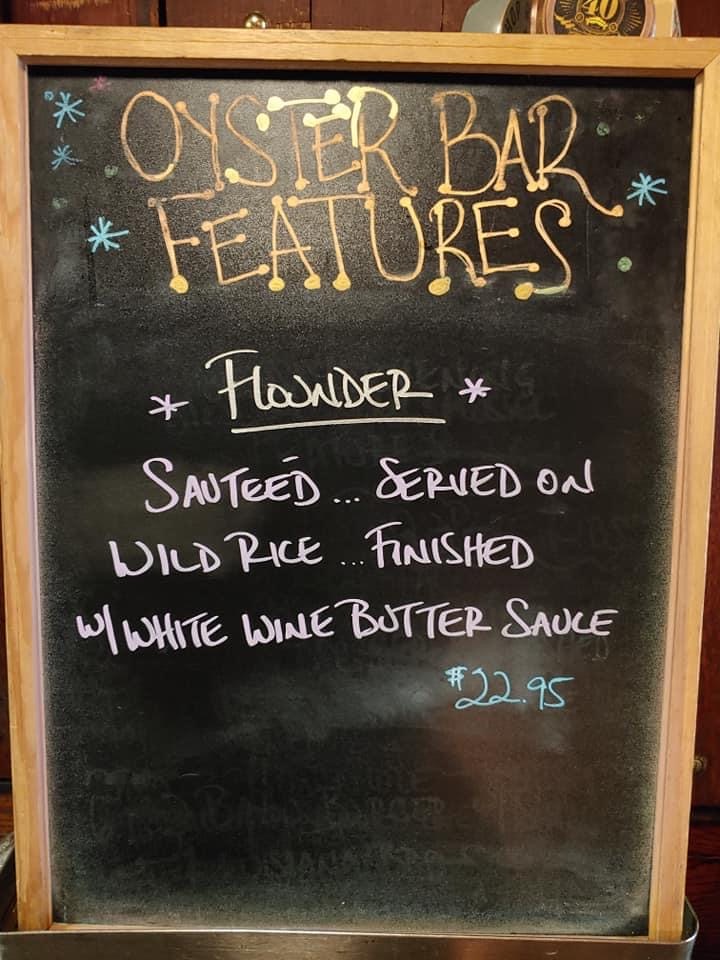 40
OYSTER BAR
FEATURES
* FLOUNDER *
SAUTEÉD ... SERVED ON
WILD RICE ... FINISHED
W/ WHITE WINE BUTTER SAUCE
$22.95